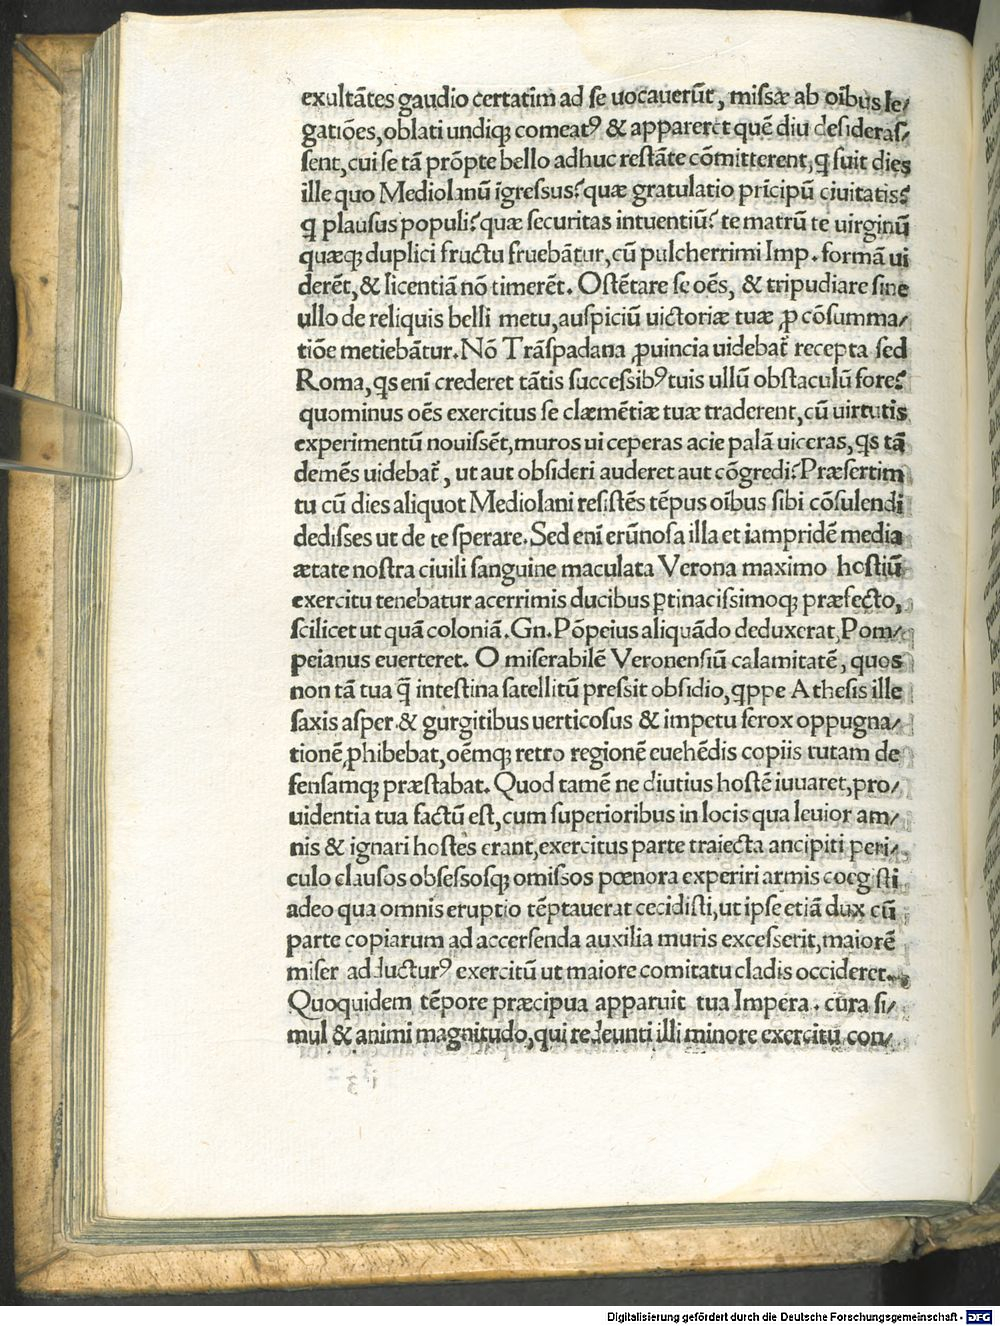 exultãtes gaudio certatim ad se uocauerũt, missæ ab oĩbus le/
gatiões, oblati undiqꝫ comeatꝰ & appareret quẽ diu desideras/
sent, cui se tã prõpte bello adhuc restãte cõmitterent, ꝙ fuit dies
ille quo Mediolanũ ĩgressus? quæ gratulatio prĩcipũ ciuitatis?
ꝙ plausus populi? quæ securitas intuentiũ? te matrũ te uirginũ
quæqꝫ duplici fructu fruebãtur, cũ pulcherrimi Imp. formã ui
derẽt, & licentiã nõ timerẽt. Ostẽtare se oẽs, & tripudiare sine
ullo de reliquis belli metu, auspiciũ uictoriæ tuæ ꝓ cõsumma/
tiõe metiebãtur. Nõ Trãspadana ꝓuincia uidebat̃ recepta sed
Roma, qs enĩ crederet tãtis successibꝰ tuis ullũ obstaculũ fore?
quominus oẽs exercitus se clæmẽtiæ tuæ traderent, cũ uirtutis
experimentũ nouissẽt, muros ui ceperas acie palã uiceras, qs tã
demẽs uidebat̃, ut aut obsideri auderet aut cõgredi? Præsertim
tu cũ dies aliquot Mediolani resistẽs tẽpus oĩbus sibi cõsulendi
dedisses ut de te sperare. Sed enĩ erũnosa illa et iampridẽ media
ætate nostra ciuili sanguine maculata Verona maximo hostiũ
exercitu tenebatur acerrimis ducibus ꝑtinacissimoqꝫ præfecto,
scilicet ut quã coloniã. Gn. Põpeius aliquãdo deduxerat, Pom/
peianus euerteret. O miserabilẽ Veronensiũ calamitatẽ, quos
non tã tua q̃ intestina satellitũ pressit obsidio, qppe Athesis ille
saxis asper & gurgitibus uerticosus & impetu ferox oppugna/
tionẽ ꝓhibebat, oẽmqꝫ retro regionẽ euehẽdis copiis tutam de
fensamqꝫ præstabat. Quod tamẽ ne diutius hostẽ iuuaret, pro/
uidentia tua factũ est, cum superioribus in locis qua leuior am/
nis & ignari hostes erant, exercitus parte traiecta ancipiti peri/
culo clausos obsessosqꝫ omissos pœnora experiri armis coegisti
adeo qua omnis eruptio tẽptauerat cecidisti, ut ipse etiã dux cũ
parte copiarum ad accersenda auxilia muris excesserit, maiorẽ
miser adducturꝰ exercitũ ut maiore comitatu cladis occideret.
Quoquidem tẽpore præcipua apparuit tua Impera. cura si/
mul & animi magnitudo, qui redeunti illi minore exercitu con/
Digitalisierung gefördert durch die Deutsche Forschungsgemeinschaft - DFG